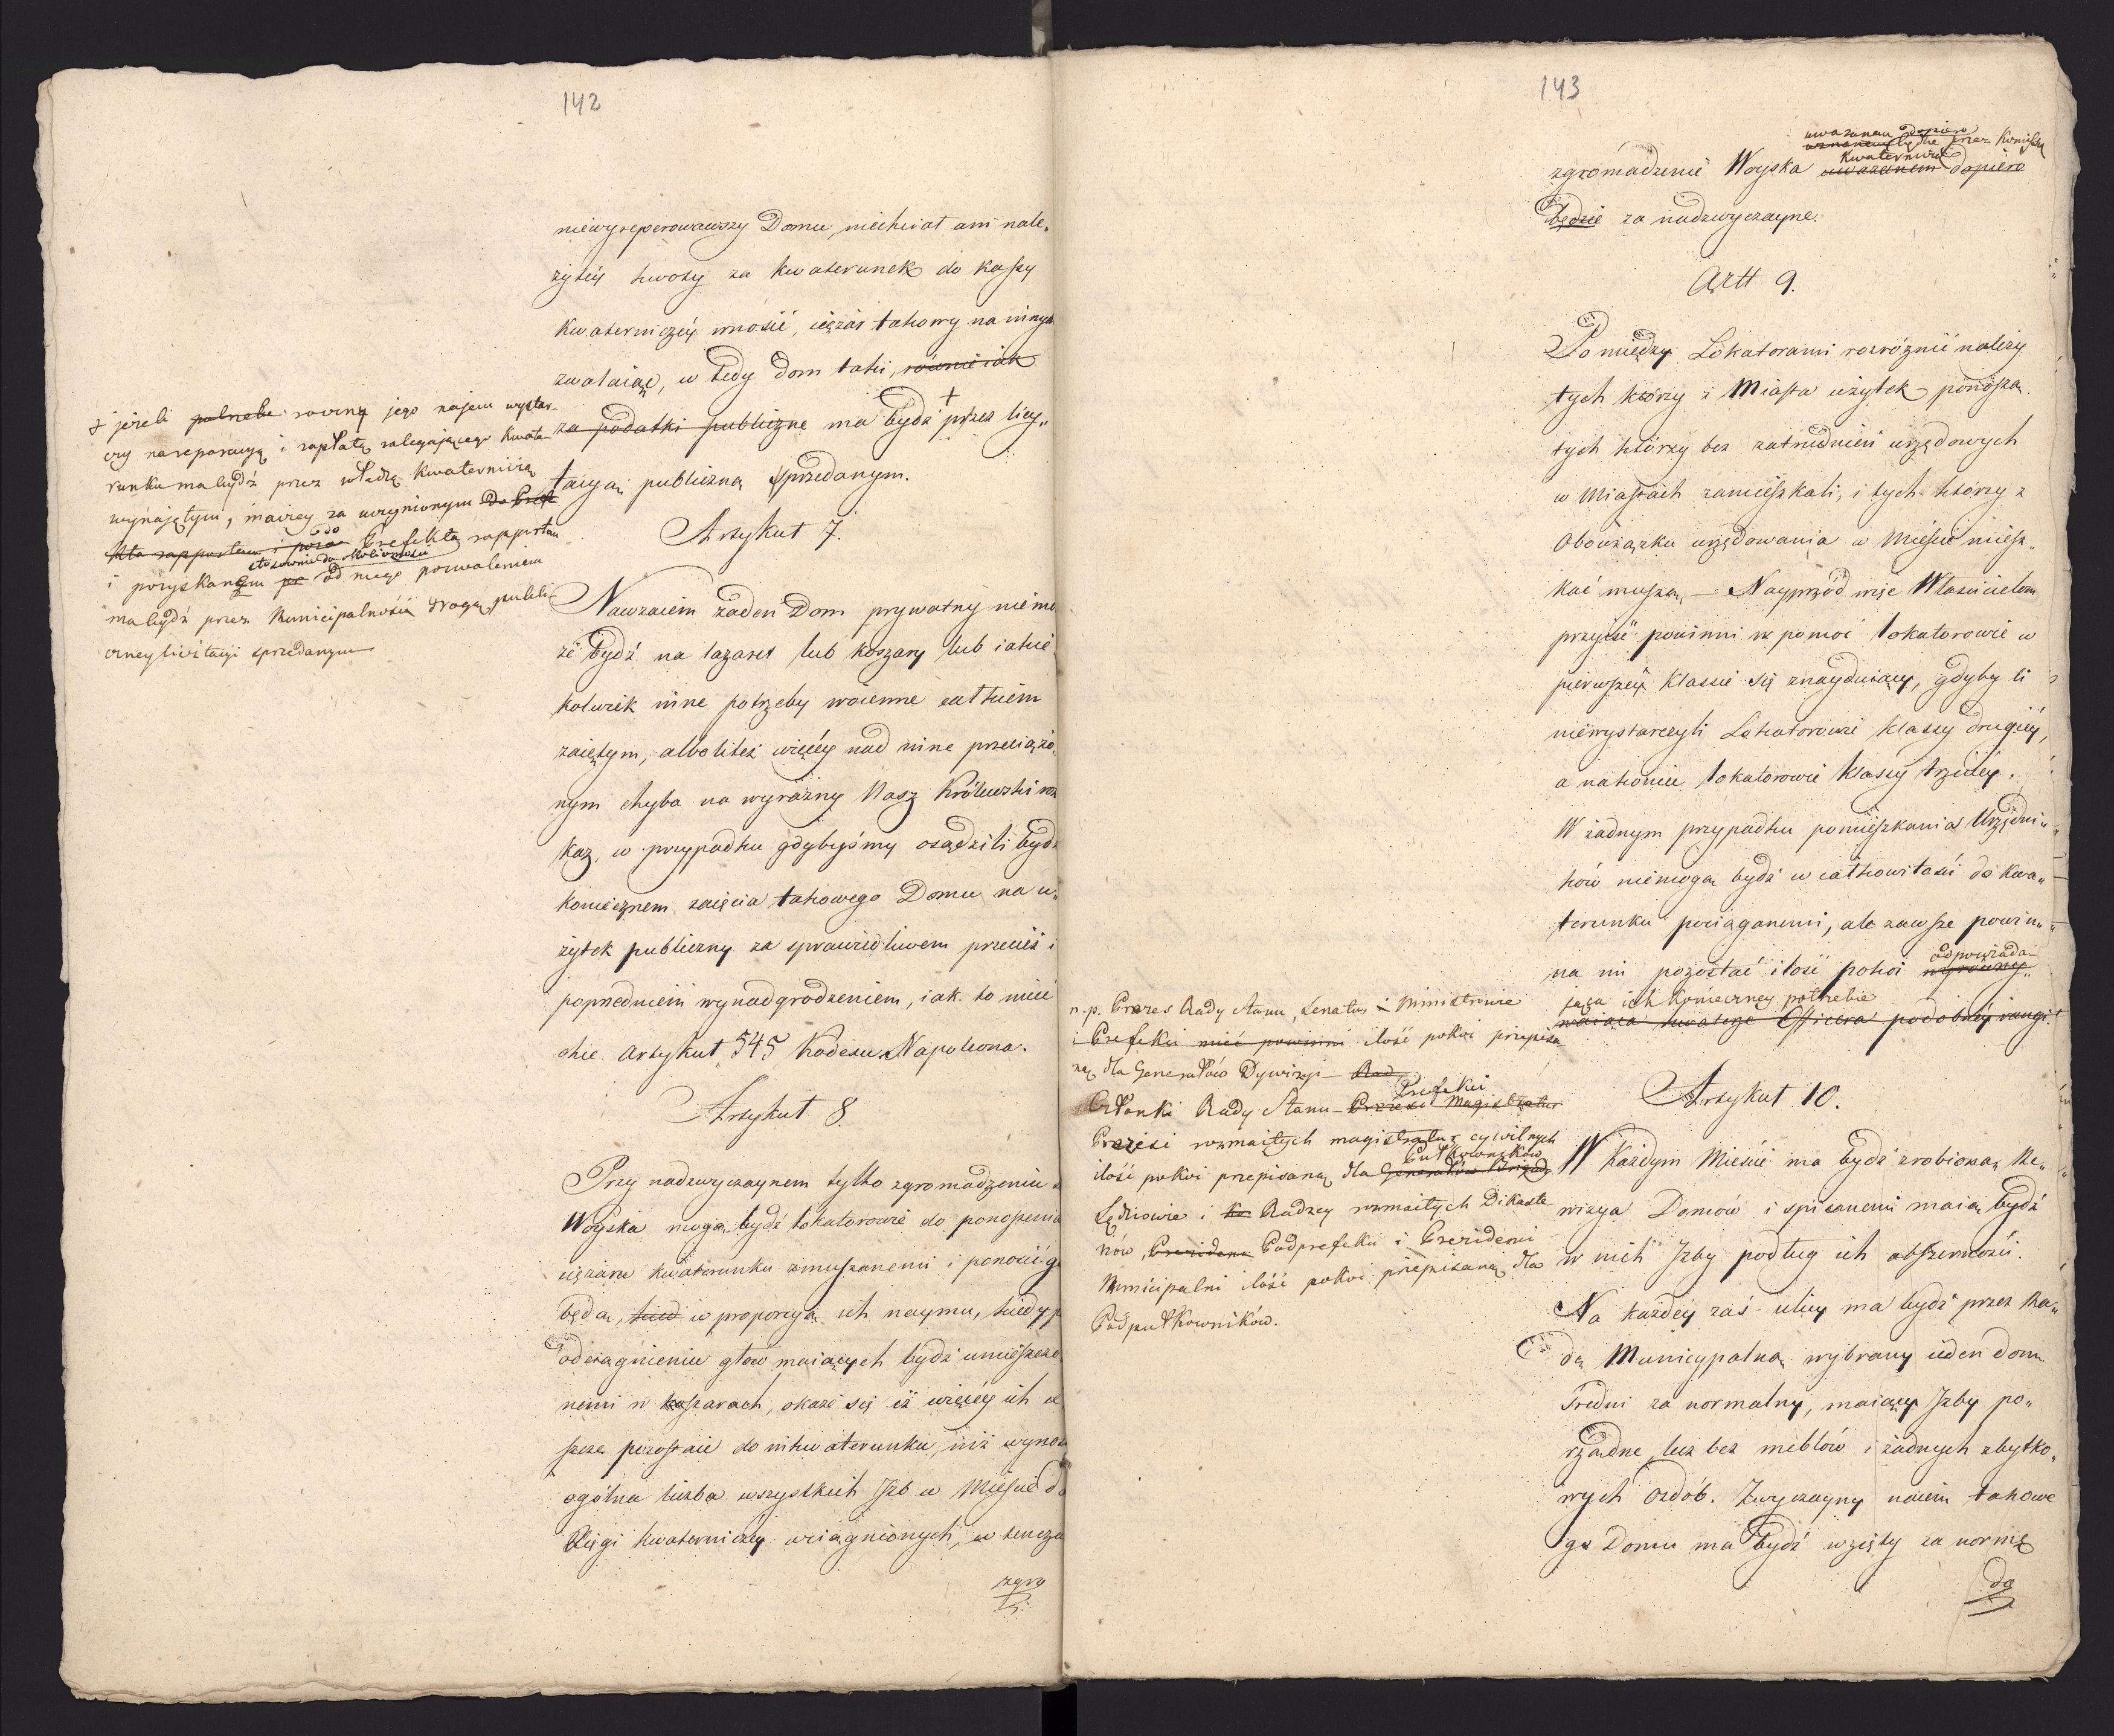 142
niewyreperowawszy Domu, niechciał ani nale„
żytéy kwoty za kwaterunek do kassy
Kwaterniczéy wnosić, ciężar takowy na innych
zwalaiąc, w tedy dom taki, równie iak
za podatki publiczne ma bydź + przez licy„
tacyą publiczną sprzedanym.
+ jeżeli potrzeba roczny jego najem wystar-
czy na reparacyą i zapłatę zalegającego Kwate-
runku ma bydź przez władzę Kwaterniczą
wynajętym, inaczey za uczynionym do Prefe-
kta rapportem i poza do Prefekta rapportem
stosownie do okoliczności
i pozyskanem po od niego pozwoleniem
ma bydź przez Municipalność drogą publi-
czney licitacyi sprzedanym
Artykuł 7.
Nawzaiem żaden Dom prywatny nie mo
że bydź na lazaret lub koszary lub iakie
kolwiek inne potrzeby woienne całkiem
zaiętym, albo liteż więcéy nad inne przeciążo„
nym chyba na wyraźny Nasz Królewski roz
kaz, w przypadku gdybyśmy osądzili bydź
koniecznem zaięcia takowego Domu na u„
żytek publiczny za sprawiedliwem przecież i
poprzedniem wynadgrodzeniem, iak to mieć
chce Artykuł 545 Kodexu Napoleona.
Artykuł 8.
Przy nadzwyczaynem tylko zgromadzeniu
Woyska mogą bydź lokatorowie do ponoszenia
ciężaru kwaterunku zmuszanemi i ponosić go
będą, kied w proporcyą ich naymu, kiedy po
odciągnieniu głów maiących bydź umieszczo
nemi w koszarach, okaże się iż więcéy ich ie
szcze pozostaie do nikwaterunku, niż wynosi
ogólna liczba wszystkich Izb w Mieście do
Xięgi kwaterniczéy wciągnionych, w tenczas
zgro
143
uważanem dopiero
uznanem będzie przez Komissyą
Kwaterniczą
zgromadzenie Woyska uważanem dopiero
będzie za nadzwyczayne.
Artt 9.
Pomiędzy Lokatorami rozróżnić należy
tych którzy z Miasta użytek ponoszą.
tych którzy bez zatrudnień urzędowych
w Miastach zamieszkali, i tych którzy z
Obowiązku urzędowania w Mieście miesz„
kać muszą, — Nayprzód więc Właścicielom
przyiść powinni w pomoc lokatorowie w
pierwszéy Klassie się znayduiący, gdyby ci
niewystarczyli Lokatorowie klassy drugiéy,
a nakoniec lokatorowie klassy trzeciéy.
W żadnym przypadku pomieszkania Urzędni„
ków niemogą bydź w całkowitości do kwa„
terunku pociąganemi, ale zawsze powin„
na im pozostać ilość pokoi odpowiada-
wyrówny„
jąca ich konieczney potrzebie
waiąca kwaterze Officera podobnéy rangi.
n.p. Prezes Rady Stanu, Senatu i Ministrowie
i Prefekci mieć powinni ilość pokoi przepisa-
ną dla Generałów Dywizyi — Rad
Członki Rady Stanu — Prezesi Magistratur
Prefekci
Prezesi rozmaitych magistratur cywilnych
ilość pokoi przepisaną dla Generałów Brigady
Pułkowników
Sędziowie i Ra Radzcy rozmaitych Dikaste
riów, Prezidenc Podprefekci i Prezidenci
Municipalni ilość pokoi przepisaną dla
Podpułkowników.
Artykuł 10.
W Każdym Mieście ma bydź zrobioną Re„
wizya Domów i spisanemi maią bydź
w nich Izby podług ich obszerności.
Na każdey zaś ulicy ma bydź przez Ra„
dę Municypalną wybrany ieden dom
średni za normalny, maiący Izby po„
rządne, lecz bez meblów i żadnych zbytko„
wych ozdób. Zwyczayny naiem takowe
go Domu ma bydź wzięty za normę
do